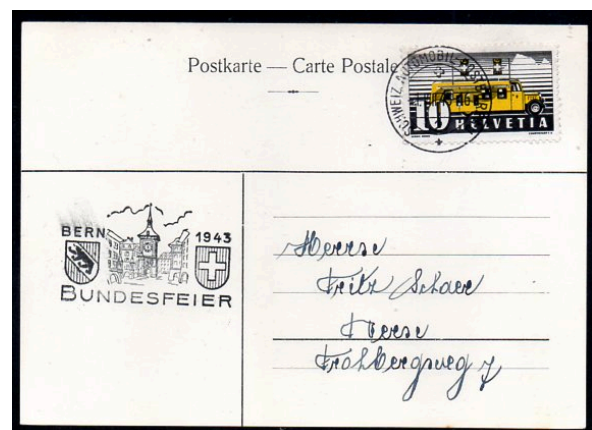 Postkarte — Carte Postale
SCHWEIZ. AUTOMOBIL-POST
10 HELVETIA
BERN 1943
BUNDESFEIER
Herrn
Fritz Schaer
Bern
Frohbergweg 7